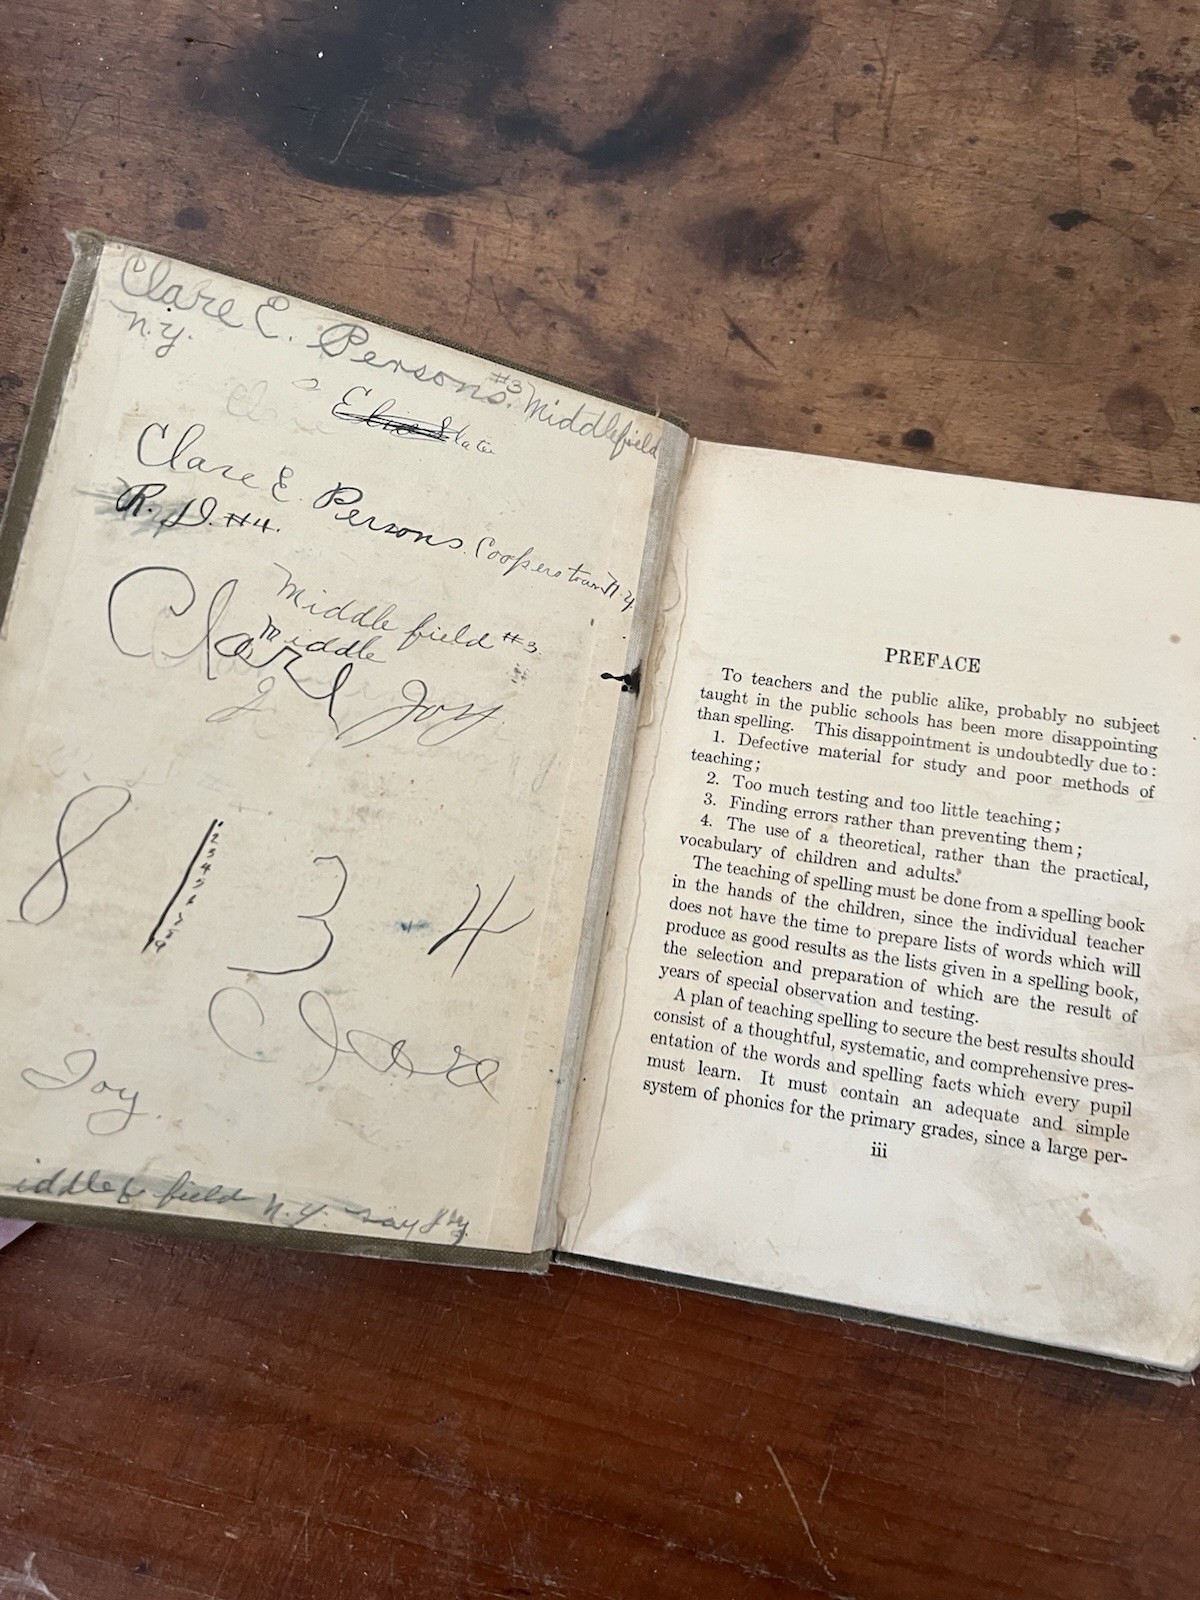 Clare E. Persons. #3 Middlefield
N.Y.
Clare E. Persons. Cooperstown N.Y.
R. D. #4.
Middlefield #3.
Middle
Clare Joy
8 1 3 4
Clare
Joy.
iddle field N.Y.
PREFACE
To teachers and the public alike, probably no subject
taught in the public schools has been more disappointing
than spelling. This disappointment is undoubtedly due to:
1. Defective material for study and poor methods of
teaching;
2. Too much testing and too little teaching;
3. Finding errors rather than preventing them;
4. The use of a theoretical, rather than the practical,
vocabulary of children and adults.
The teaching of spelling must be done from a spelling book
in the hands of the children, since the individual teacher
does not have the time to prepare lists of words which will
produce as good results as the lists given in a spelling book,
the selection and preparation of which are the result of
years of special observation and testing.
A plan of teaching spelling to secure the best results should
consist of a thoughtful, systematic, and comprehensive pres-
entation of the words and spelling facts which every pupil
must learn. It must contain an adequate and simple
system of phonics for the primary grades, since a large per-
iii